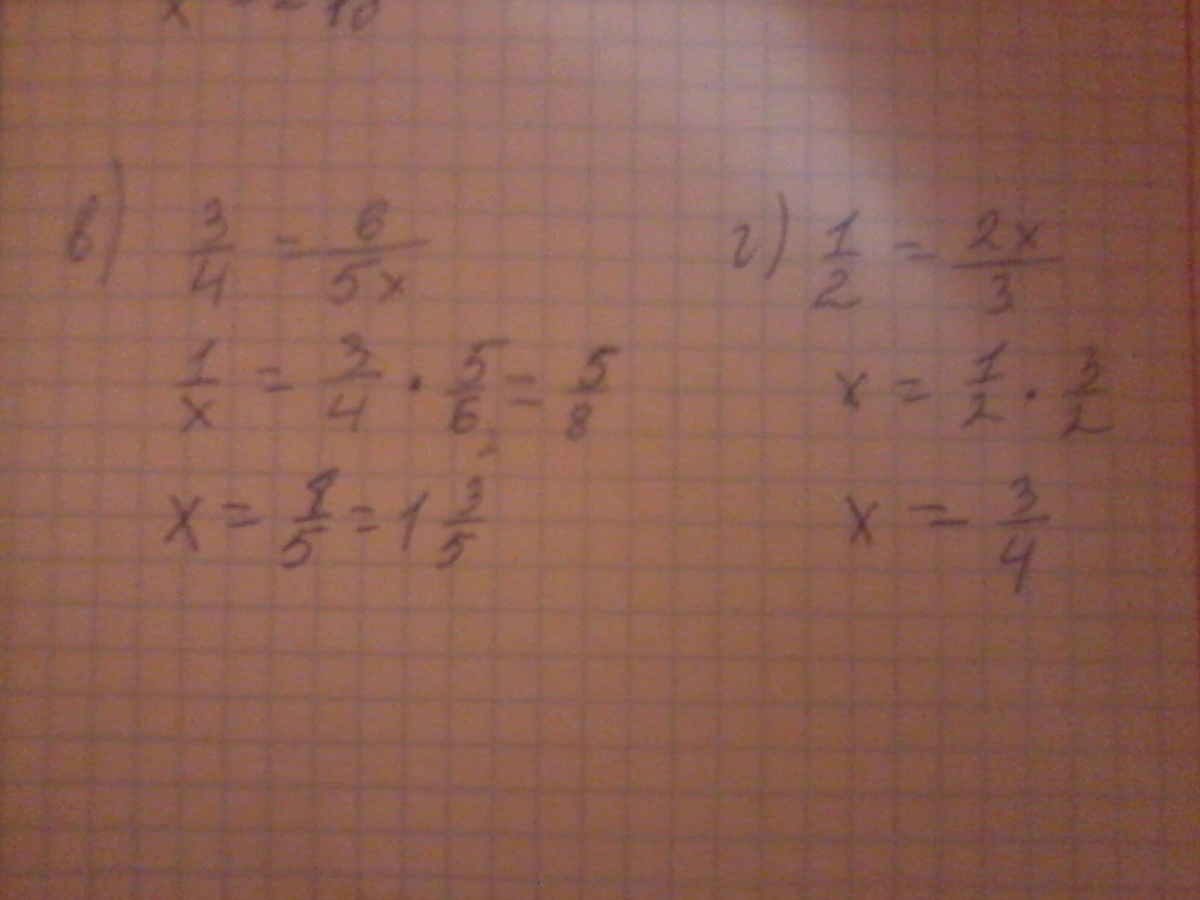 в) 3/4 = 6/5x
1/x = 3/4 · 5/6 = 5/8
x = 8/5 = 1 3/5
г) 1/2 = 2x/3
x = 1/2 · 3/2
x = 3/4